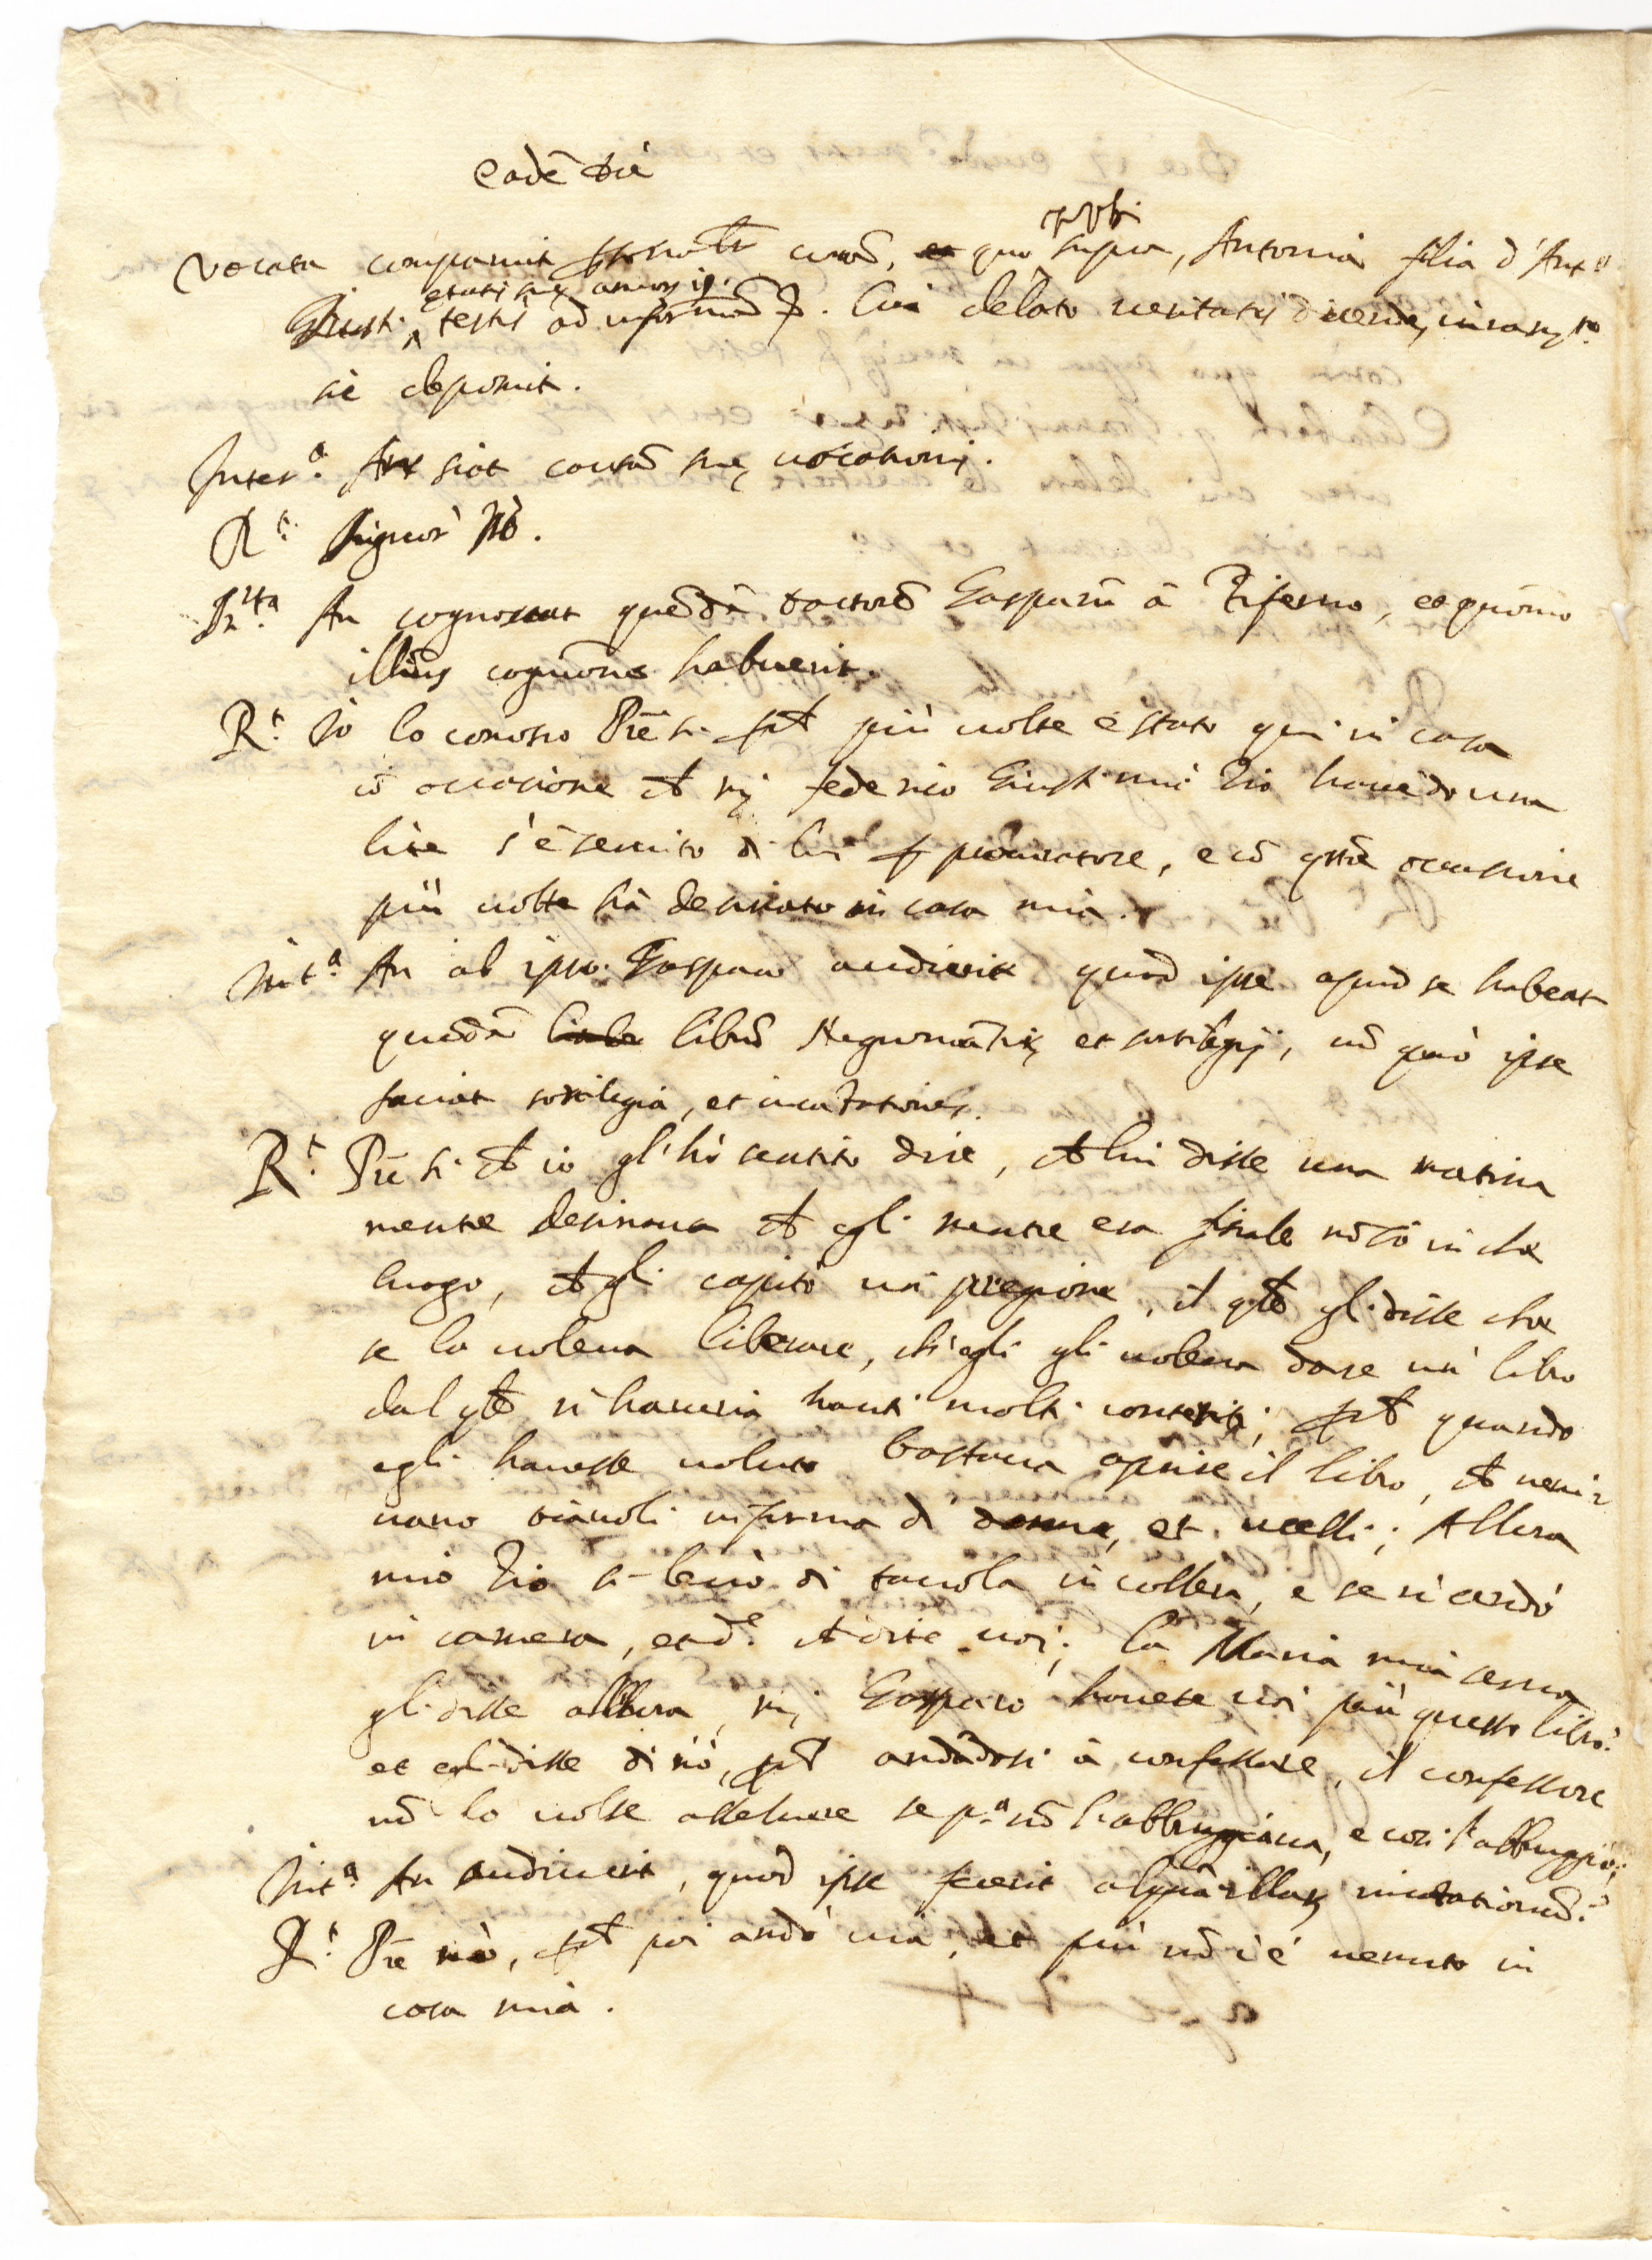 Eadē die
Vocata comparuit psonalr corā, quo supra, Antonia filia d'Ant.o
Giusti etatis suę annorum testis ad informādū p. Cui delato veritatis dicendę iuram.to
sic deposuit.
Inter.a An sciat causā suę vocationis.
R.t Signor nò.
Int.ta An cognoscat quēdā Doctorē Gasparū à Tiferno, et quomō
illius cognitionē habuerit.
R.t Io lo conosco Prē si pchè più volte è stato quì in casa
cō occasione chè m Federico Giusti mio Zio havēdo una
lite s'è servito di lui p procuratore, e cō qsta occasione
più volte hà desinato in casa mia.
Int.a An ab ipso Gasparo audierit quod ipse apud se habeat
quēdā librū Negromātię et sortilegij, vel quod ipse
faciat sortilegia, et incātationes.
R.t Prē si chè io gl'hò sentito dire, chè lui disse una matina
mentre desinava chè egli mentre era fiscale nō sò in che
luogo, chè gli capitò un pregione, il qle gli disse che
se lo voleva liberare, ch'egli gli voleva dare un libro
dal qle si haveria hauti molti contenti; pchè quando
egli havesse voluto bastava aprire il libro, chè veni-
vano diavoli in forma di donne, et ucelli; Allora
mio Zio si levò di tavola in collera, e se n'andò
in camera, et d.e chè dite voi; la Maria mia serva
gli disse allhora, m Gasparo havete voi più questo libro?
et egli disse di nò, pchè andādosi à confessare, il confessore
nō lo volse assolvere se p.a nō l'abbruggiava, e così l'abbruggiò;
Int.a An audiverit, quod ipse fecerit aliquā illarū incātationū?
R.t Prē nò, pchè poi andò via, et più nō c'è venuto in
casa mia.